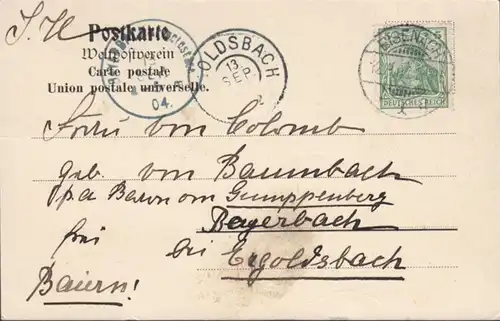 I. H.
Postkarte
Weltpostverein
Carte postale
Union postale universelle.
04.
OLDSBACH
13
SEP.
EISENACH
DEUTSCHES REICH
5
1
Frau von Colomb
geb. von Baumbach
p. a Baron von Gumppenberg
Bayerbach
bei
Ergoldsbach
Baiern!